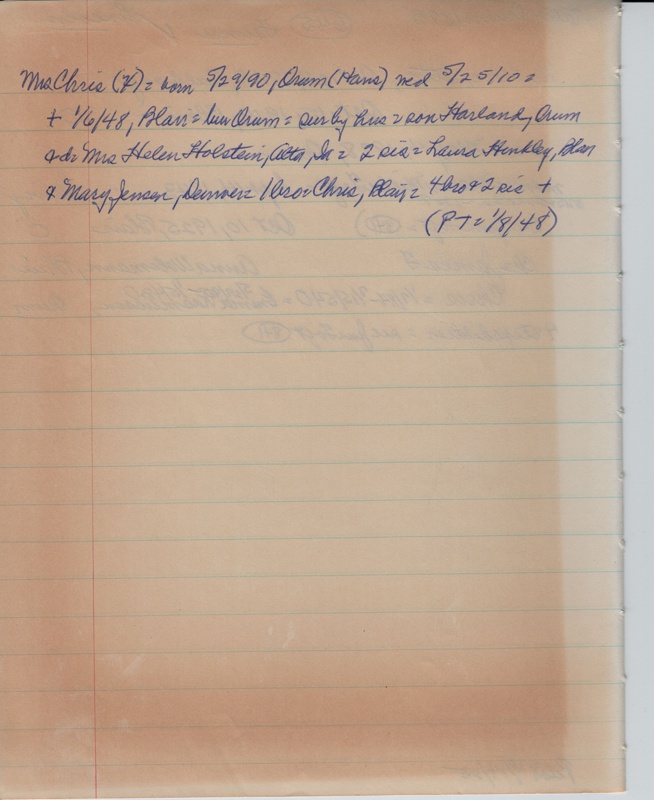 Mrs Chris (H) = born 5/29/90, Orum (Hans) med 5/25/10 =
+ 1/6/48, Blair = bur Orum = sur by hus = son Harland, Orum
& d = Mrs Helen Holstein, Alta, Ia = 2 sis = Laura Henkley, Blair
& Mary Jensen, Denver = 1 bro = Chris, Blair = 4 bro & 2 sis +
(PT = 1/8/48)